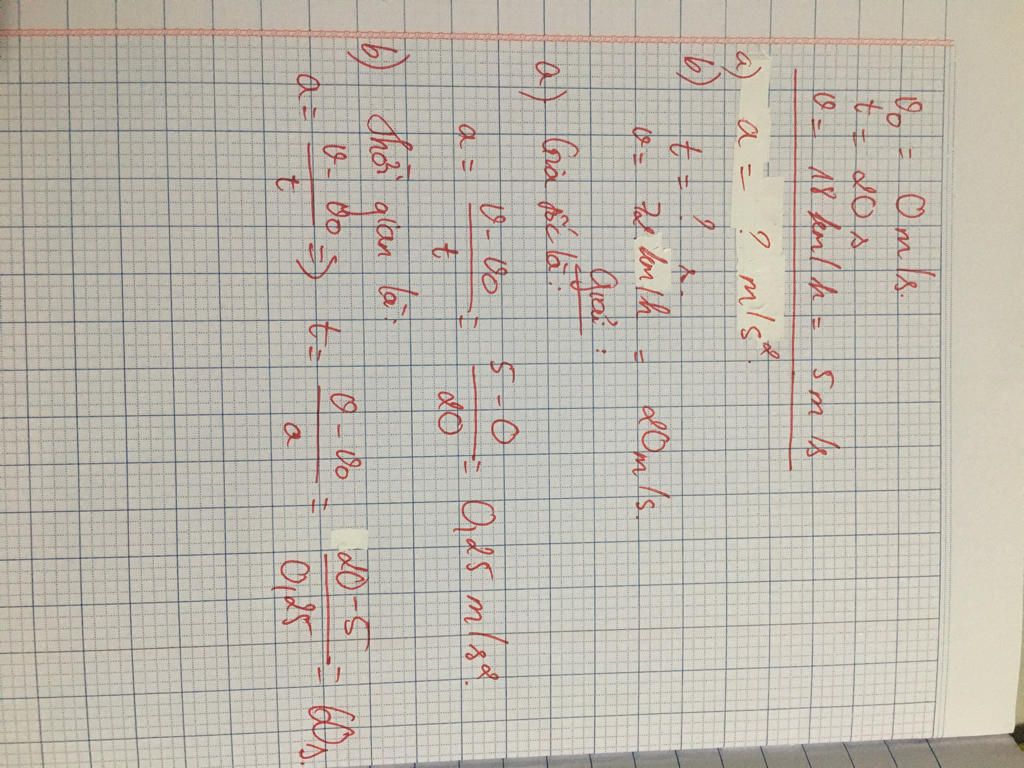 v₀ = 0 m/s.
t = 20 s
v = 18 km/h = 5 m/s
a) a = ? m/s².
b) t = ? s.
v = 72 km/h = 20 m/s.
Giải :
a) Gia tốc là :
a = (v - v₀)/t = (5 - 0)/20 = 0,25 m/s².
b) Thời gian là :
a = (v - v₀)/t => t = (v - v₀)/a = (20 - 5)/0,25 = 60s.